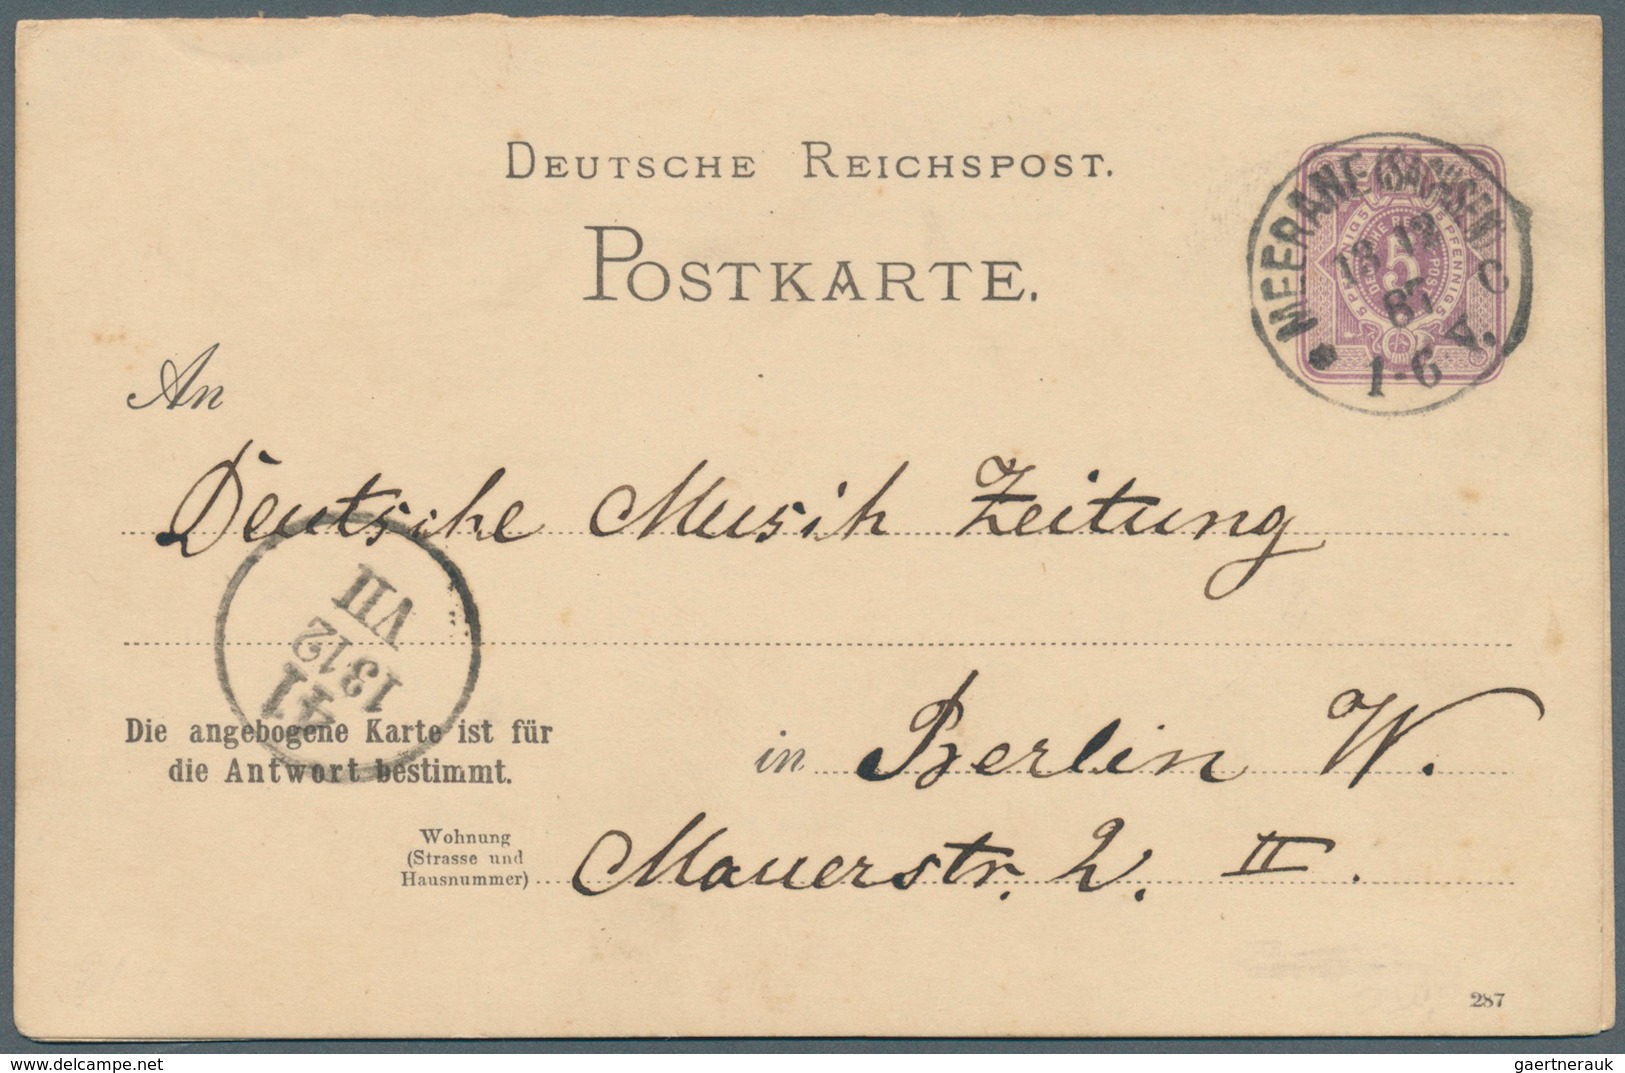 DEUTSCHE REICHSPOST.
POSTKARTE.
MEERANE (SACHSEN) C
13 12
87
1-6 V.
5 PFENNIG 5 PFENNIG 5
DEUTSCHE REICHS POST
5
An
Deutsche Musik Zeitung
VII
1312
41
Die angebogene Karte ist für
die Antwort bestimmt.
in Berlin W.
Wohnung
(Strasse und
Hausnummer)
Mauerstr. 2. II.
287
www.delcampe.net
gaertnerauk